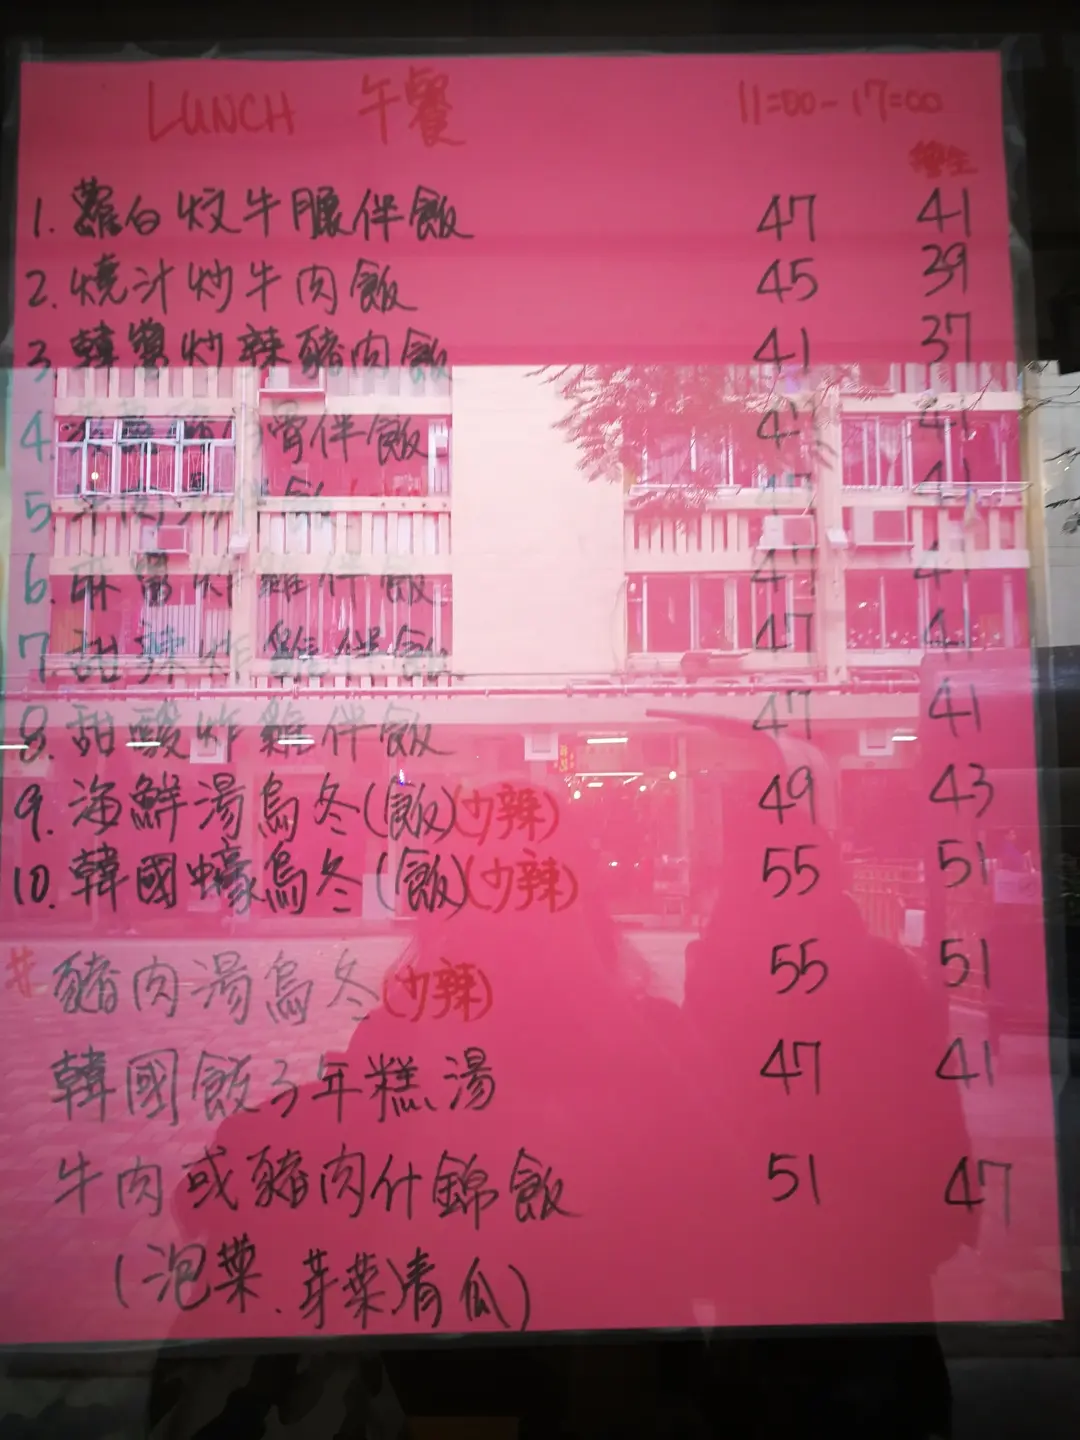 LUNCH 午餐 11:00-17:00
學生
1. 蘿白炆牛腩伴飯 47 41
2. 燒汁炒牛肉飯 45 39
3. 韓醬炒辣豬肉飯 41 37
4. 骨伴飯 47 41
5. 牛肉 47 41
6. 麻醬炸雞伴飯 47 41
7. 甜辣炸雞伴飯 47 41
8. 甜酸炸雞伴飯 47 41
9. 海鮮湯烏冬(飯)(少辣) 49 43
10. 韓國蠔烏冬(飯)(少辣) 55 51
# 豬肉湯烏冬(少辣) 55 51
韓國餃子年糕湯 47 41
牛肉或豬肉什錦飯 51 47
(泡菜、芽菜、青瓜)